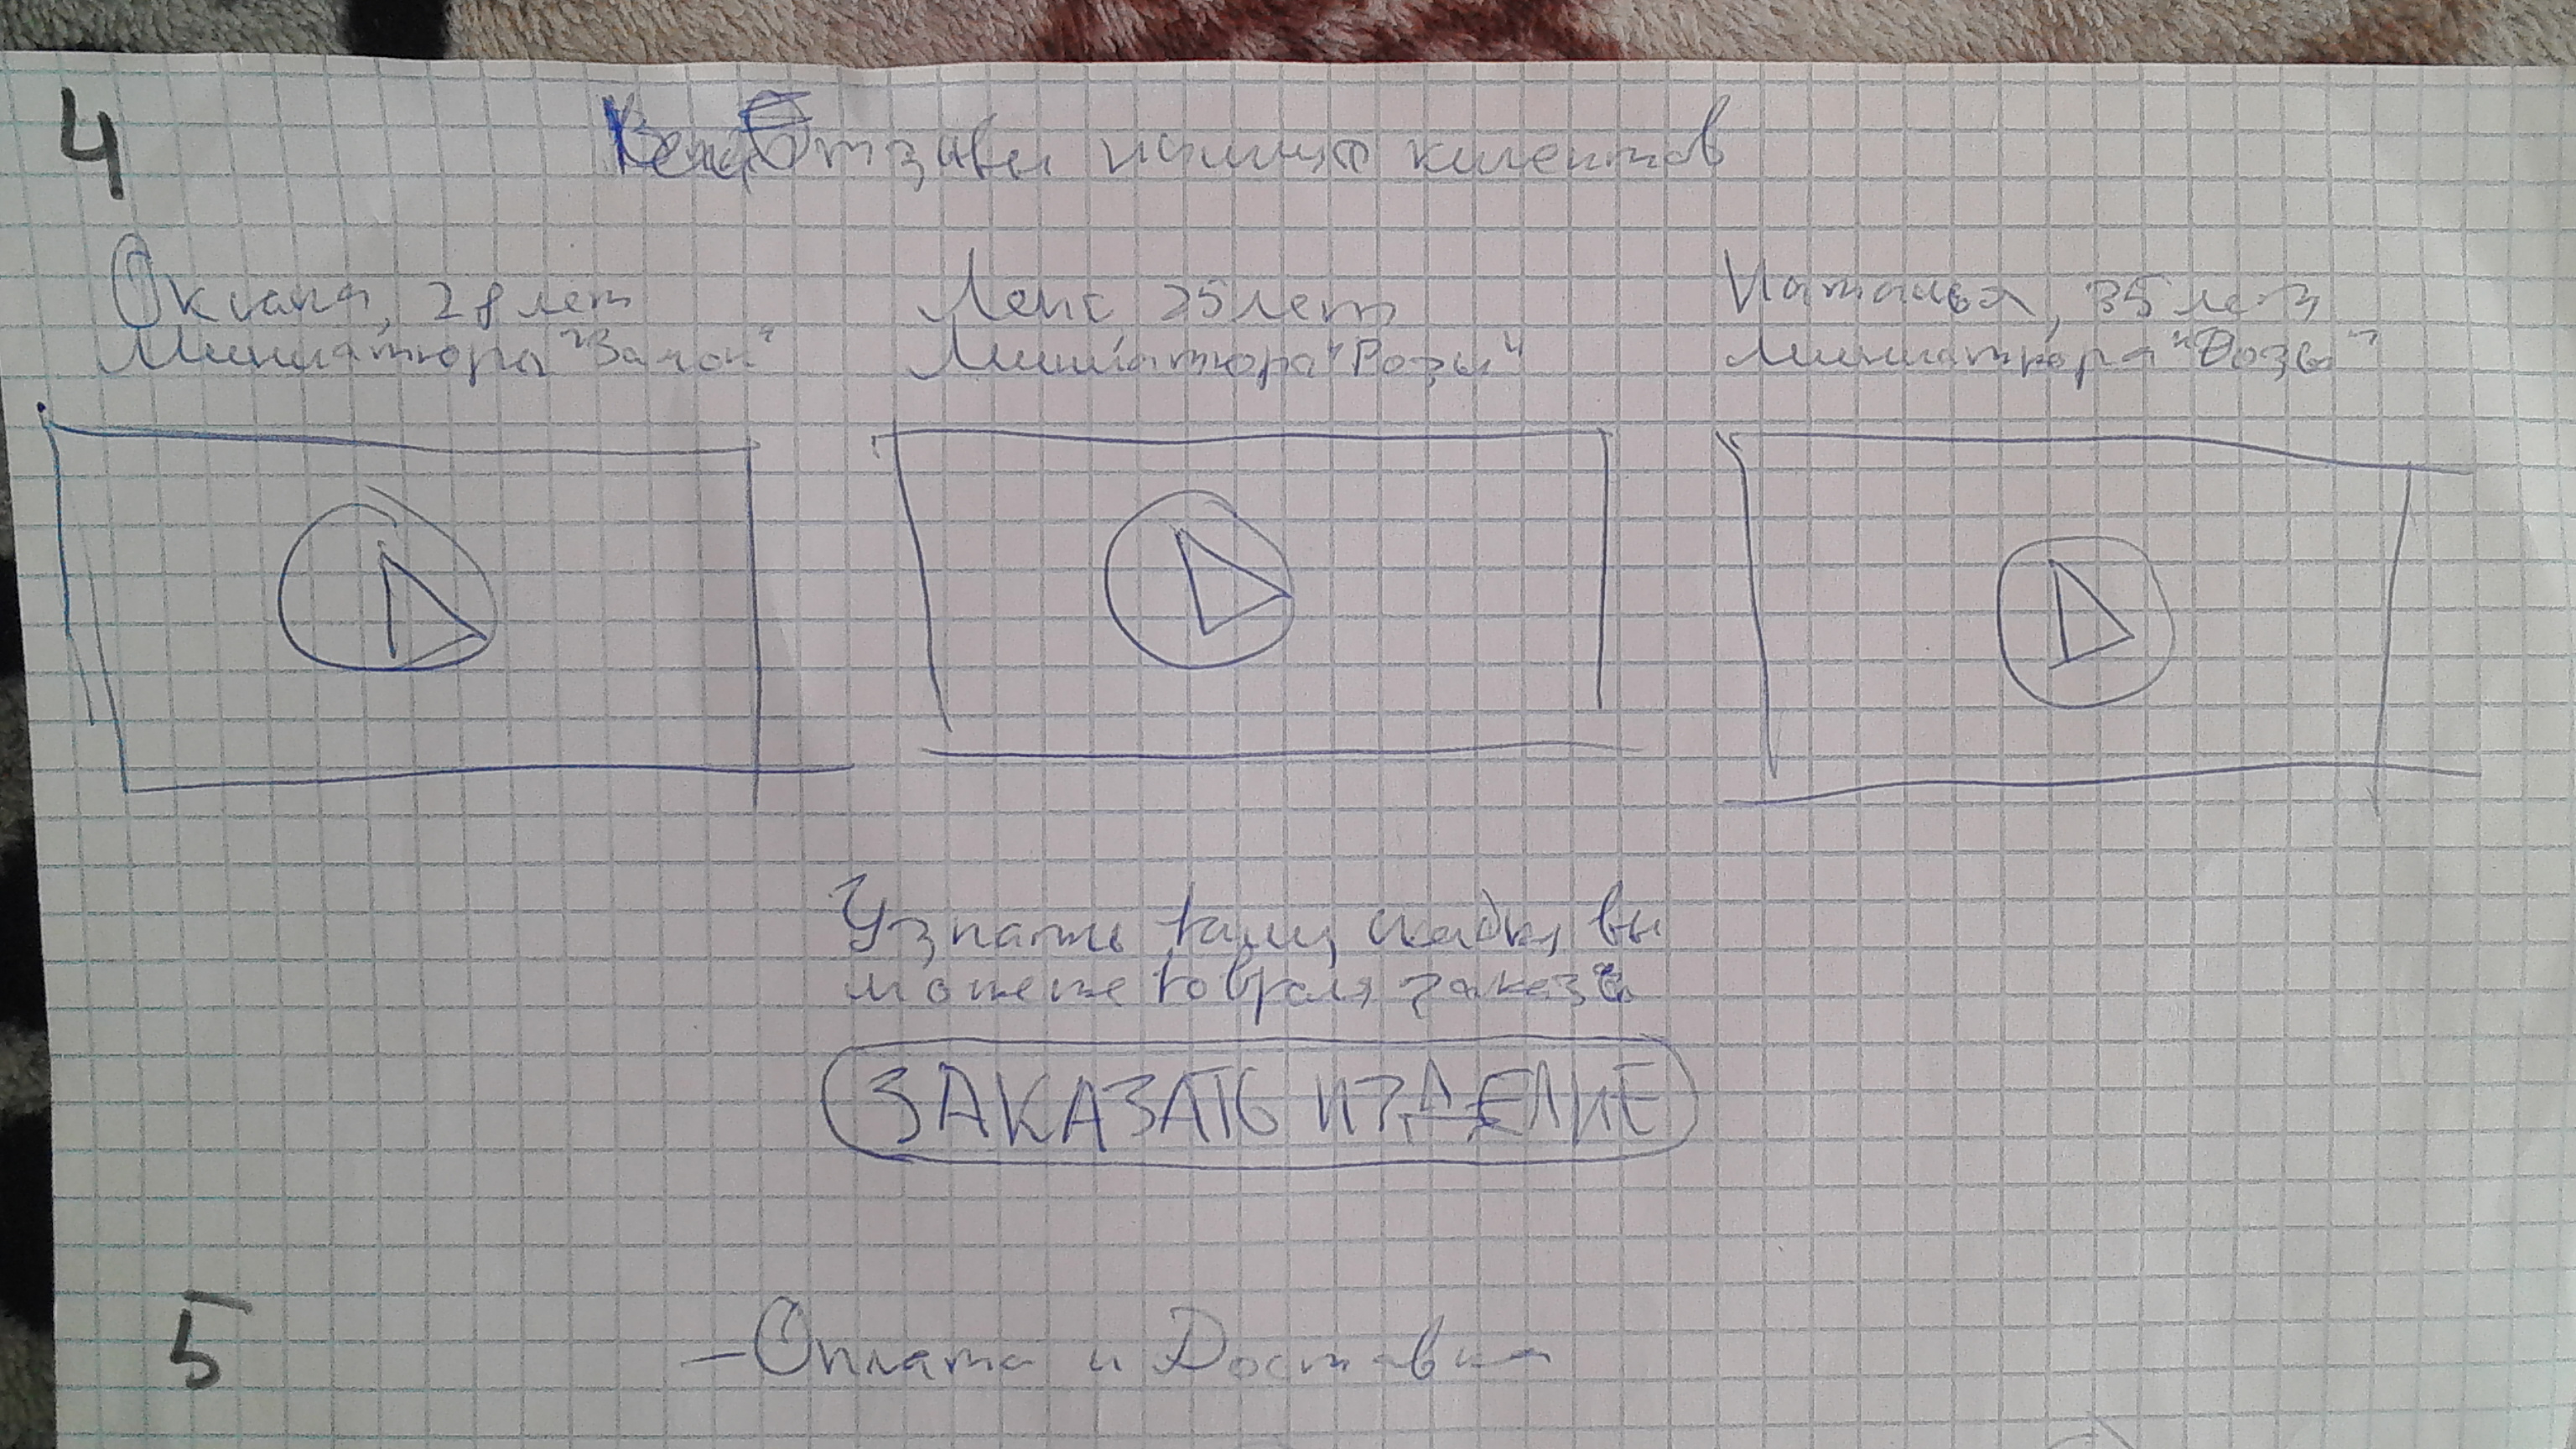 4
Отзывы наших клиентов
Оксана, 28 лет
Миниатюра "Замок"
Лена, 25 лет
Миниатюра "Розы"
Наталья, 35 лет
Миниатюра "Розы"
Узнать вы
можете заказа
ЗАКАЗАТЬ ИЗДЕЛИЕ
5
- Оплата и Доставка